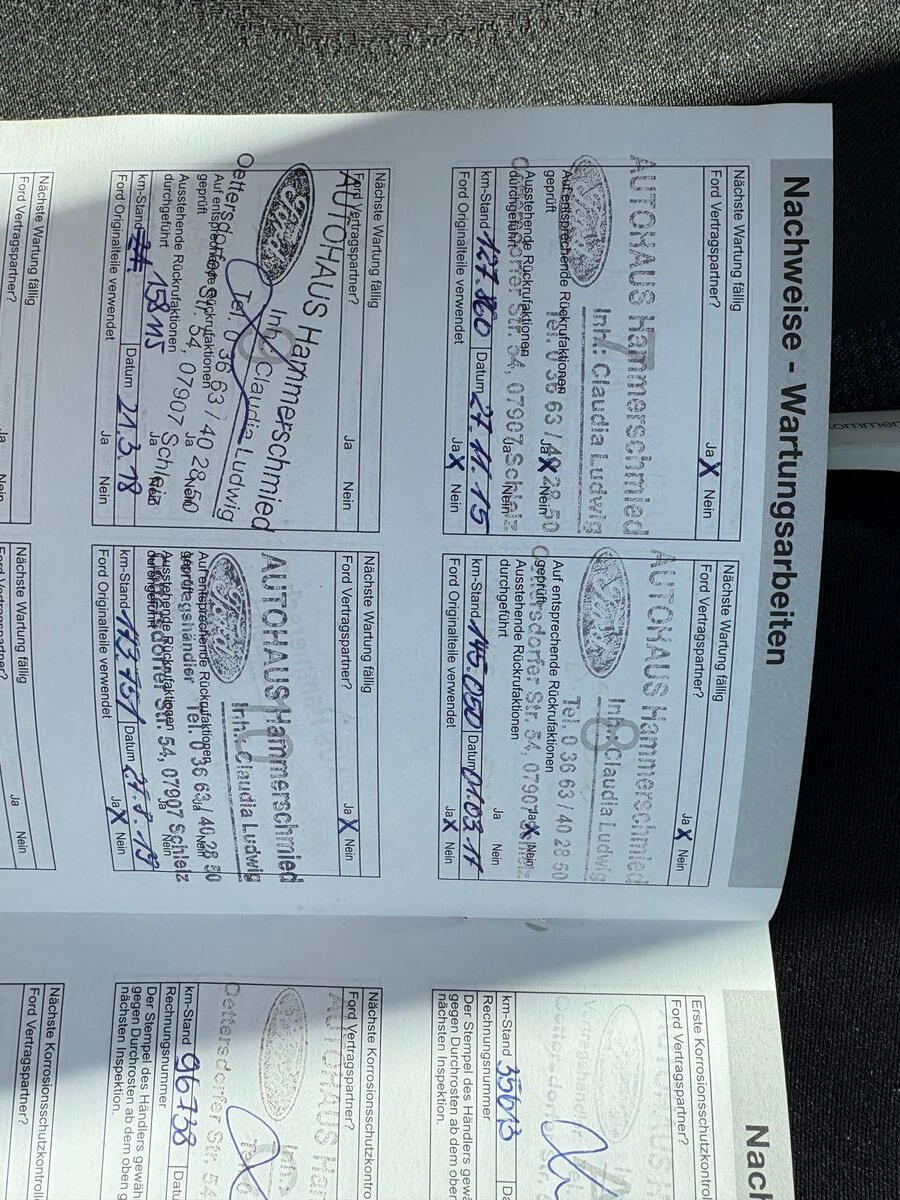 Nachweise - Wartungsarbeiten
Nächste Wartung fällig
Ford Vertragspartner? Ja X Nein
7
AUTOHAUS Hammerschmied
Inh.: Claudia Ludwig
Ford
Tel. 0 36 63 / 40 28 50
Auf entsprechende Rückrufaktionen
geprüft Ja X Nein
Oettersdorfer Str. 54, 07907 Schleiz
Ausstehende Rückrufaktionen
durchgeführt Ja Nein
km-Stand 127.860 Datum 27.11.15
Ford Originalteile verwendet Ja X Nein
Nächste Wartung fällig
Ford Vertragspartner? Ja X Nein
8
AUTOHAUS Hammerschmied
Inh.: Claudia Ludwig
Ford
Tel. 0 36 63 / 40 28 50
Auf entsprechende Rückrufaktionen
geprüft Ja X Nein
Oettersdorfer Str. 54, 07907
Ausstehende Rückrufaktionen
durchgeführt Ja Nein
km-Stand 145.050 Datum
Ford Originalteile verwendet Ja X Nein
Nächste Wartung fällig
Ford Vertragspartner? Ja Nein
9
AUTOHAUS Hammerschmied
Inh.: Claudia Ludwig
Ford
Tel. 0 36 63 / 40 28 50
Oettersdorfer Str. 54, 07907 Schleiz
Auf entsprechende Rückrufaktionen
geprüft Ja Nein
Ausstehende Rückrufaktionen
durchgeführt Ja Nein
km-Stand 158115 Datum 21.3.18
Ford Originalteile verwendet Ja Nein
Nächste Wartung fällig
Ford Vertragspartner? Ja X Nein
10
AUTOHAUS Hammerschmied
Inh.: Claudia Ludwig
Ford
Tel. 0 36 63 / 40 28 50
Auf entsprechende Rückrufaktionen
geprüft Ja Nein
Oettersdorfer Str. 54, 07907 Schleiz
Ausstehende Rückrufaktionen
durchgeführt Ja Nein
km-Stand 173.751 Datum 27.8.19
Ford Originalteile verwendet Ja X Nein
Nächste Wartung fällig
Ford Vertragspartner? Ja Nein
Nächste Wartung fällig
Ford Vertragspartner? Ja Nein
Nach
Erste Korrosionsschutzkontrol
Ford Vertragspartner?
km-Stand 35613 Da
Rechnungsnummer
Der Stempel des Händlers gewäh
gegen Durchrosten ab dem ober
nächsten Inspektion.
Nächste Korrosionsschutzkontro
Ford Vertragspartner?
AUTOHAUS Ham
Inh.
Oettersdorfer Str. 54,
km-Stand 96738 Datu
Rechnungsnummer
Der Stempel des Händlers gewäh
gegen Durchrosten ab dem oben g
nächsten Inspektion.
Nächste Korrosionsschutzkontroll
Ford Vertragspartner?